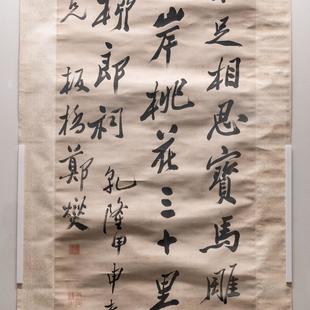 足相思寶馬雕
岸桃花三十里
柳郎祠
乾隆甲申
板橋鄭燮